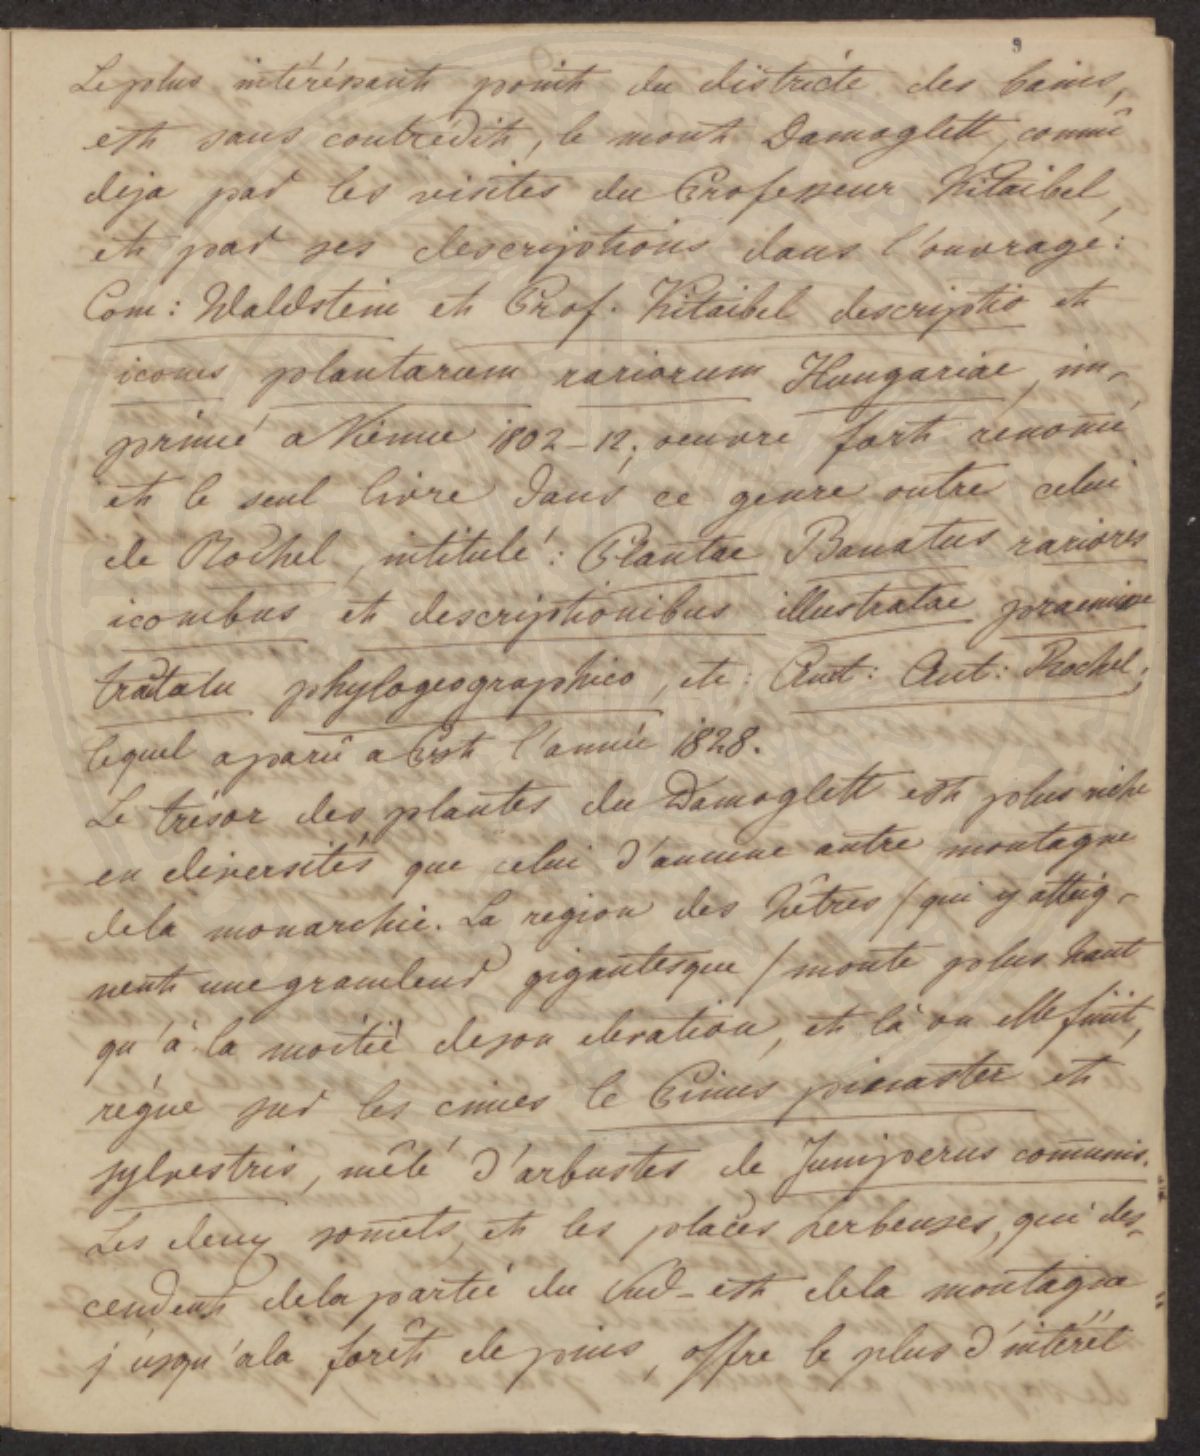 9
Le plus intéressant point du districte des bains,
est sans contredit, le mont Damoglett, connû
déja par les visites du Professeur Kitaibel,
et par ses descriptions dans l'ouvrage:
Com: Waldstein et Prof. Kitaibel descriptio et
icones plantarum rariorum Hungariae, im-
primé a Vienne 1802-12; oeuvre fort renomé
et le seul livre dans ce genre outre celui
de Rochel, intitulé: Plantae Banatus rariores
iconibus et descriptionibus illustratae praemisse
tratatu phylogeographico, etc: Auct: Ant: Rochel;
lequel a parû a Pest l'année 1828.
Le trésor des plantes du Damoglett est plus riche
en diversités que celui d'aucune autre montagne
dela monarchie. La region des hêtres (qui y atteig-
nent une grandeur gigantesque) monte plus haut
qu'à la moitié deson elevation, et là ou elle finit,
régne sur les cimes le Pinus pinaster et
sylvestris, mêlé d'arbustes de Juniperus comunis.
Les deux somets, et les places herbeuses, qui des-
cendent dela partie du Sud-est dela montagne
j'usqu'ala forêt de pins, offre le plus d'intérêt